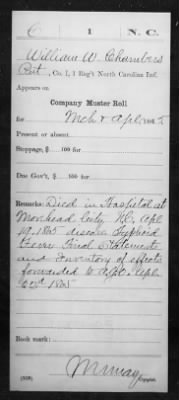 C 1 N.C.
William W. Chambers
Pvt, Co. I, 3 Reg't North Carolina Inf.
Appears on
Company Muster Roll
for Mch & Apl, 186 5
Present or absent
Stoppage, $ 100 for
Due Gov't, $ 100 for
Remarks: Died in Hospital at
Morehead City N.C. Apl
19, 1865 disease Typhoid
Fever Final Statements
and Inventory of effects
forwarded to A.G.O. Apl
1865
Book mark:
(358) Copyist.